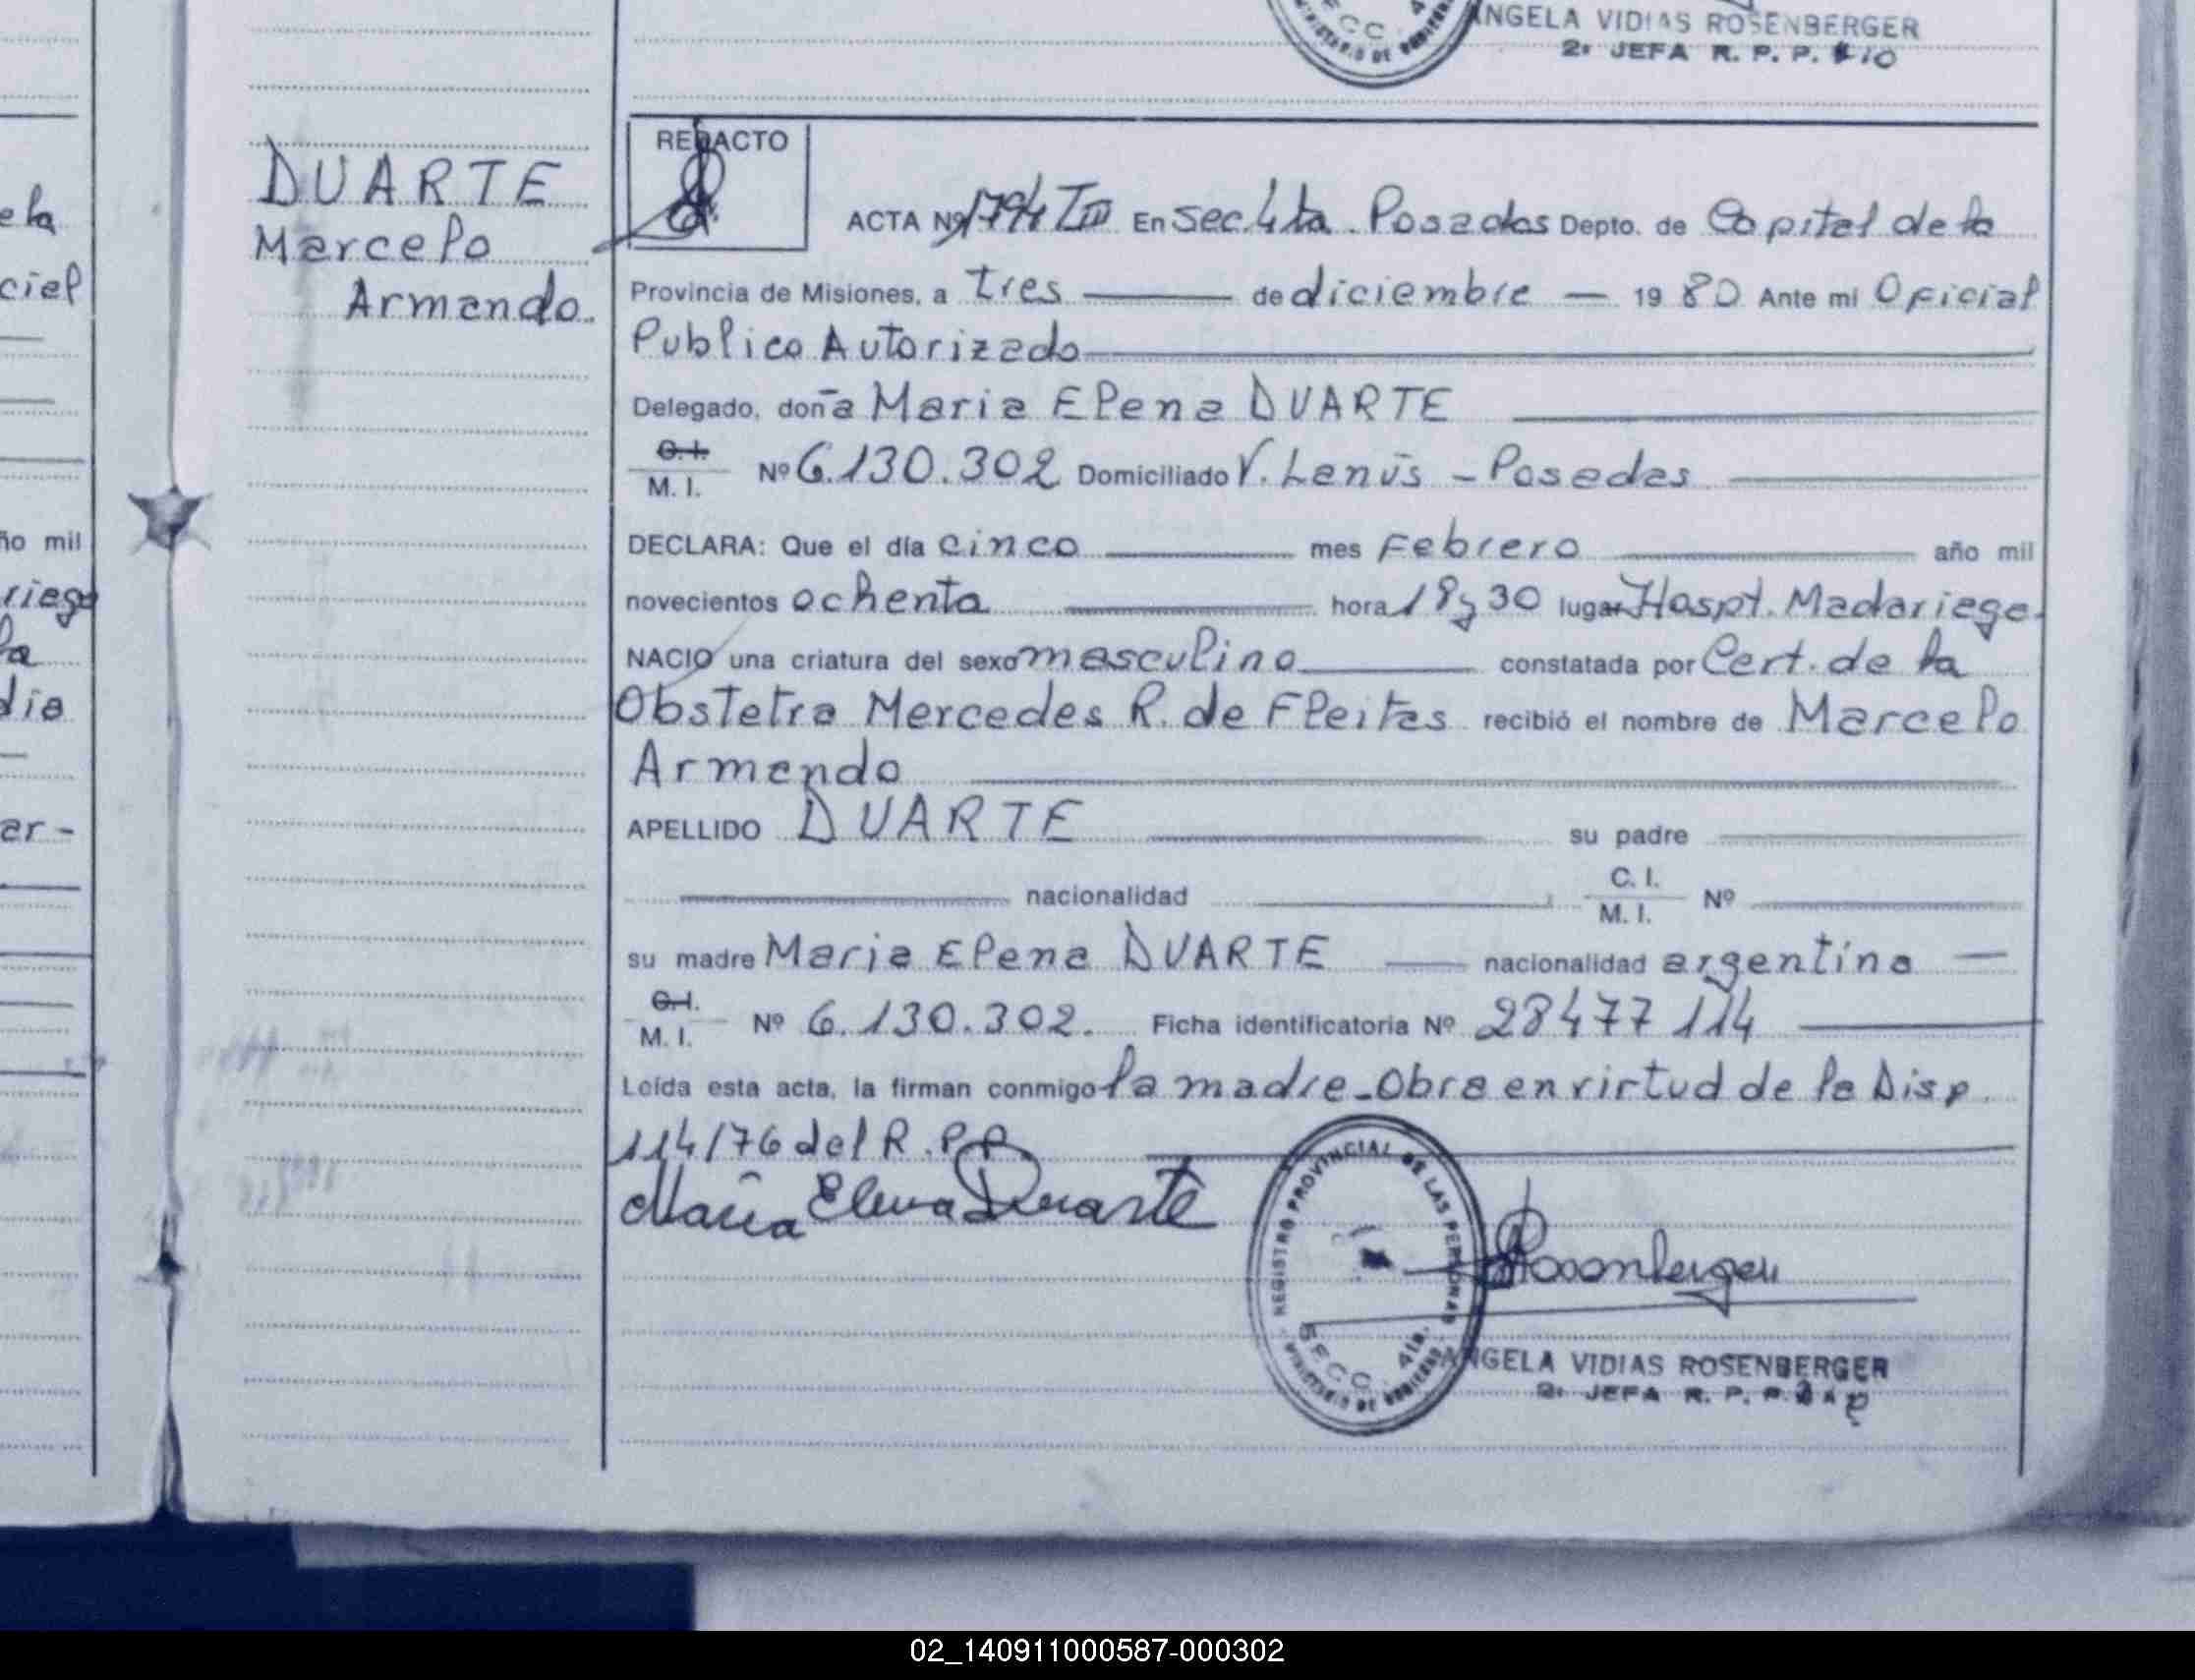 ANGELA VIDIAS ROSENBERGER
2ª JEFA R. P. P.
DUARTE
Marcelo
Armando.
REDACTO
ACTA Nº 1794 TIII En Sec. 4ta. Posadas Depto. de Capital de la
Provincia de Misiones, a tres de diciembre 1980 Ante mi Oficial
Publico Autorizado
Delegado, doña Maria Elena DUARTE
C. I.
M. I. Nº 6.130.302 Domiciliado V. Lanús - Posadas
DECLARA: Que el día cinco mes Febrero año mil
novecientos ochenta hora 18 y 30 lugar Hospt. Madariaga.
NACIO una criatura del sexo masculino constatada por Cert. de la
Obstetra Mercedes R. de Fleitas recibió el nombre de Marcelo
Armando
APELLIDO DUARTE su padre
nacionalidad C. I.
M. I. Nº
su madre Maria Elena DUARTE nacionalidad argentina
C. I.
M. I. Nº 6.130.302. Ficha identificatoria Nº 28477 114
Leída esta acta, la firman conmigo la madre - Obra en virtud de la Disp.
114/76 del R. P. P.
María Elena Duarte
REGISTRO PROVINCIAL DE LAS PERSONAS
SECC. 4ta.
MINISTERIO DE GOBIERNO
Rosenberger
ANGELA VIDIAS ROSENBERGER
2ª JEFA R. P. P.
ela
ciel
ño mil
riega
la
dia
ar-
02_140911000587-000302